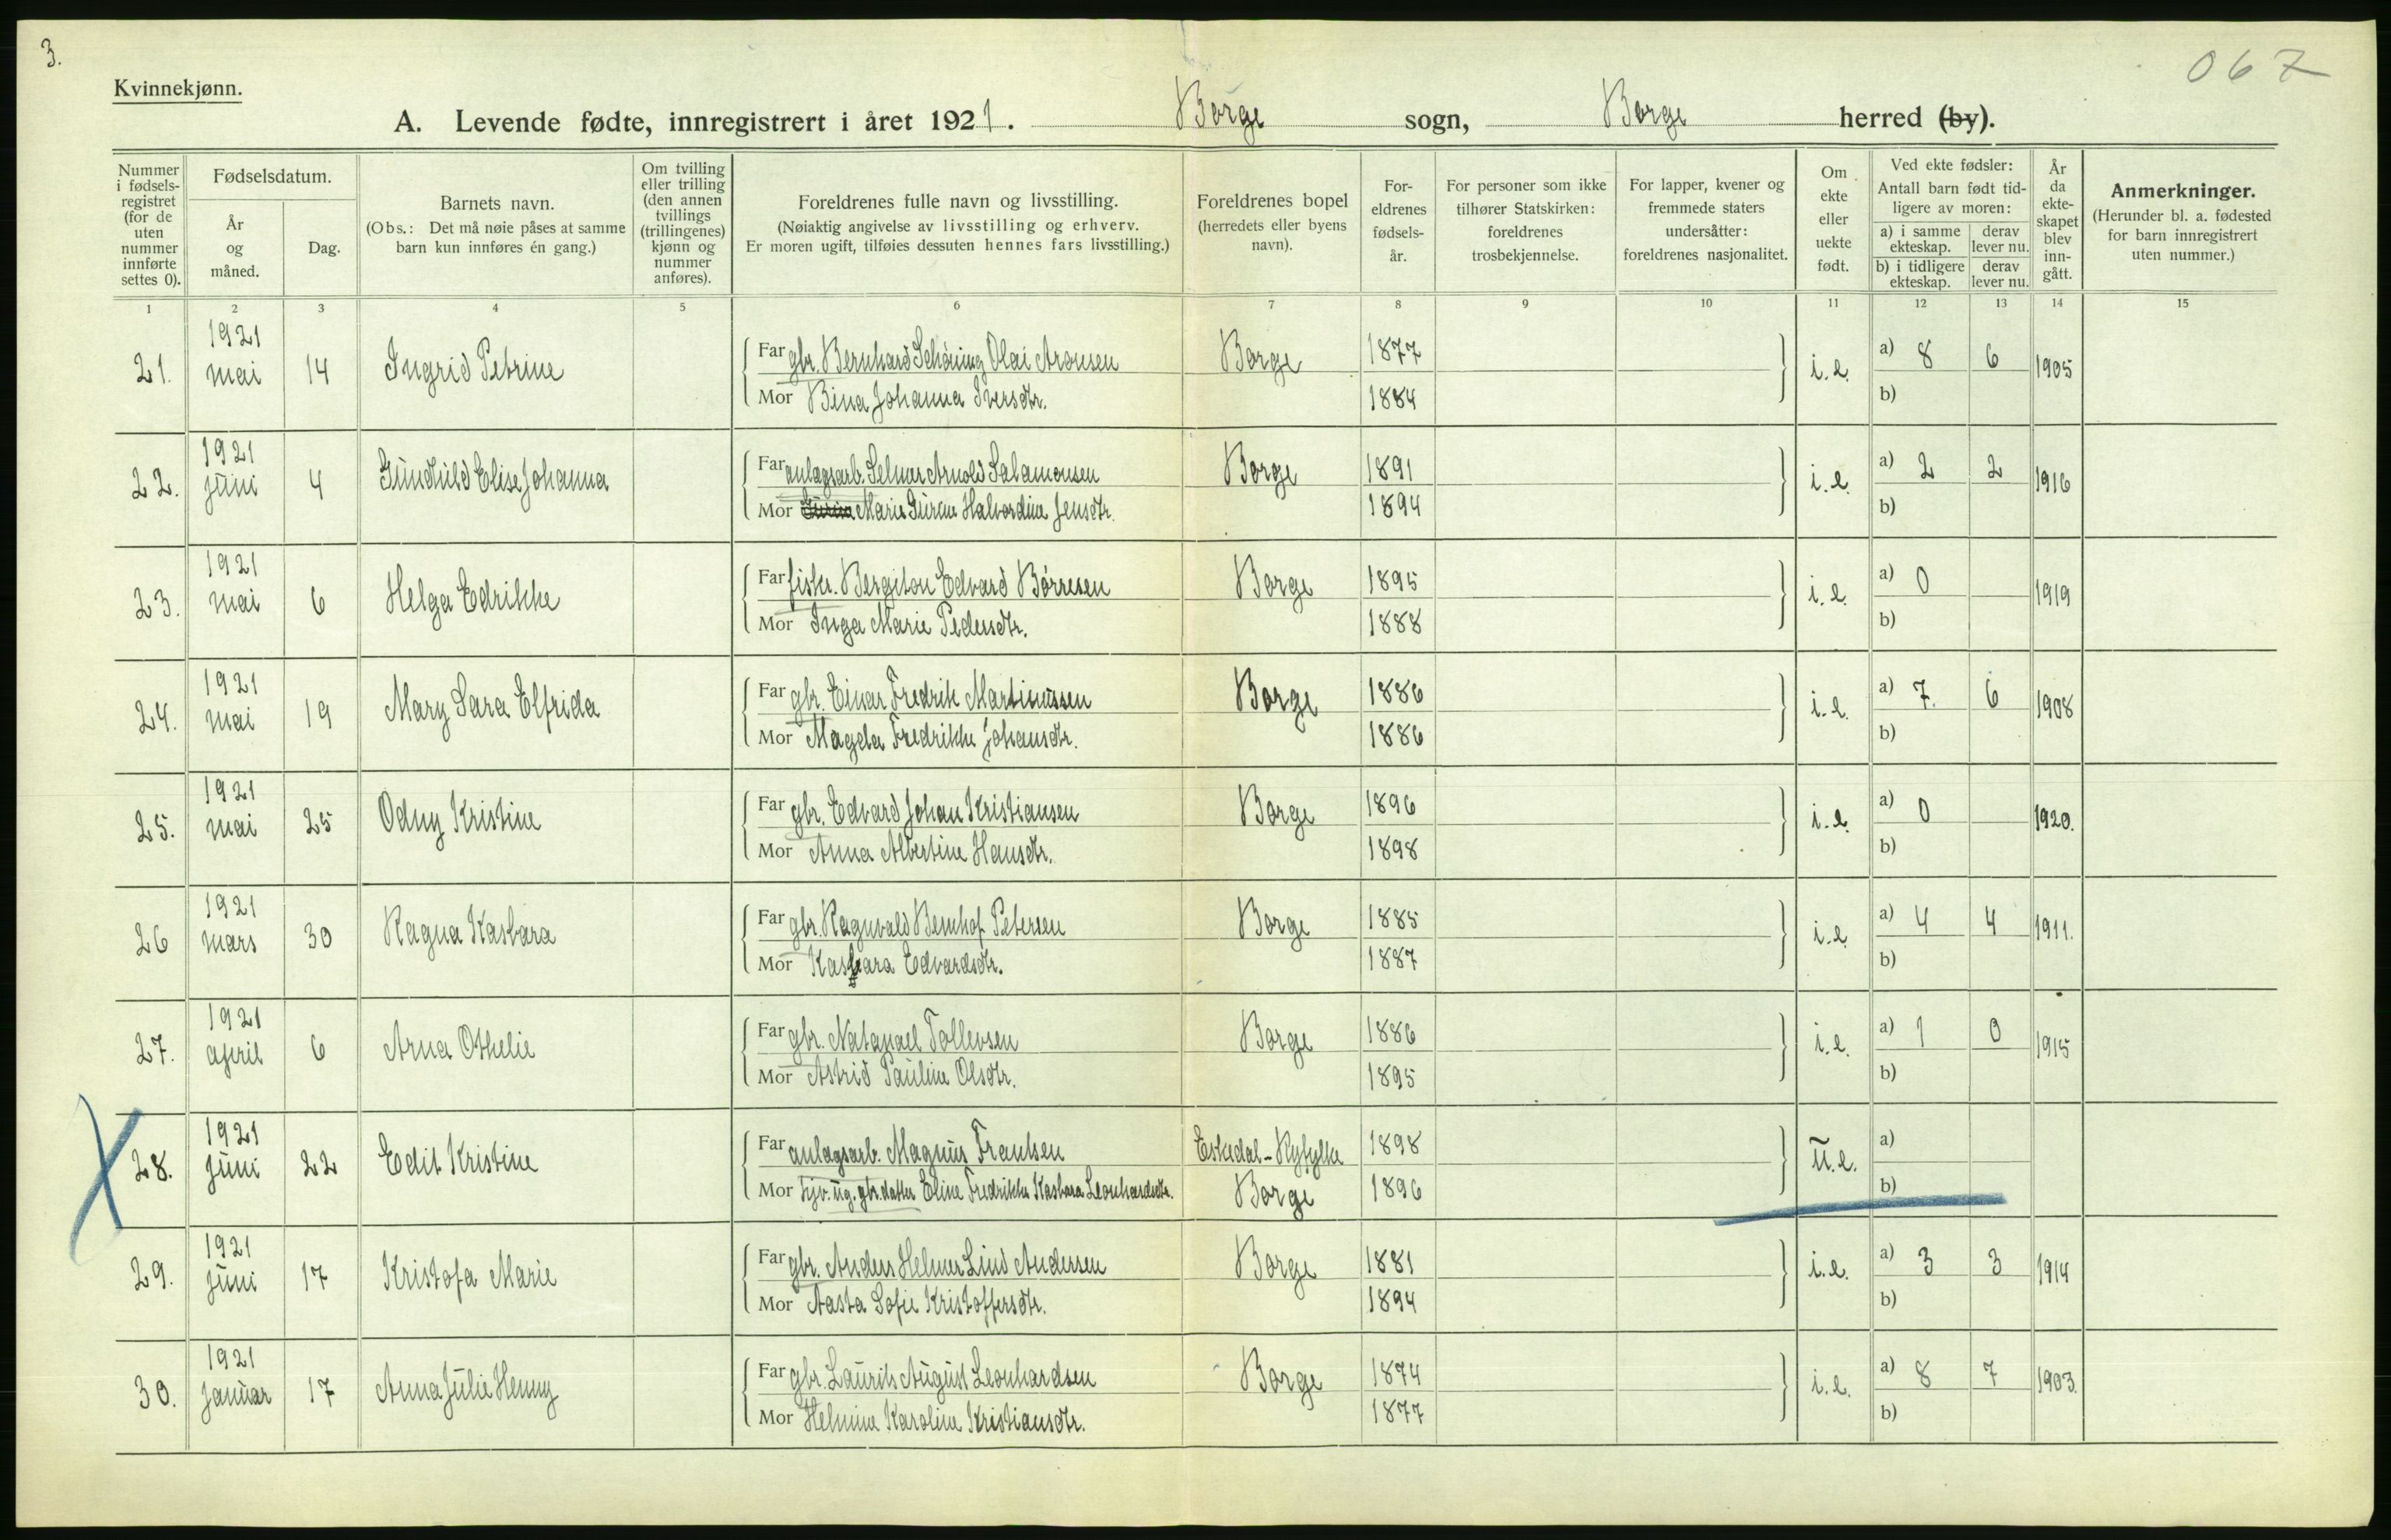 3.
067
Kvinnekjønn.
A. Levende fødte, innregistrert i året 1921. Borge sogn, Borge herred (by).
Nummer i fødsels-registret (for de uten nummer innførte settes 0).
Fødselsdatum.
År og måned.
Dag.
Barnets navn.
(Obs.: Det må nøie påses at samme barn kun innføres én gang.)
Om tvilling eller trilling (den annen tvillings (trillingenes) kjønn og nummer anføres).
Foreldrenes fulle navn og livsstilling.
(Nøiaktig angivelse av livsstilling og erhverv.
Er moren ugift, tilføies dessuten hennes fars livsstilling.)
Foreldrenes bopel
(herredets eller byens navn).
For-eldrenes fødsels-år.
For personer som ikke tilhører Statskirken: foreldrenes trosbekjennelse.
For lapper, kvener og fremmede staters undersåtter: foreldrenes nasjonalitet.
Om ekte eller uekte født.
Ved ekte fødsler:
Antall barn født tid-ligere av moren:
a) i samme ekteskap. derav lever nu.
b) i tidligere ekteskap. derav lever nu.
År da ekte-skapet blev inn-gått.
Anmerkninger.
(Herunder bl. a. fødested for barn innregistrert uten nummer.)
1 2 3 4 5 6 7 8 9 10 11 12 13 14 15
21. 1921 mai 14 Ingrid Petrine Far gbr. Bernhard Schöning Olai Aronsen Borge 1877 i.e. a) 8 6 1905
Mor Bina Johanna Iversdtr. 1884 b)
22. 1921 juni 4 Gundhild Elise Johanna Far anlagsarb. Selmar Arnold Salamonsen Borge 1891 i.e. a) 2 2 1916
Mor Marie Gurine Halvordine Jensdtr. 1894 b)
23. 1921 mai 6 Helga Edrikke Far fisker. Bergiton Edvard Börresen Borge 1895 i.e. a) 0 1919
Mor Inga Marie Pedersdtr. 1888 b)
24. 1921 mai 19 Mary Sara Elfrida Far gbr. Einar Fredrik Martinussen Borge 1886 i.e. a) 7. 6 1908
Mor Magda Fredrikke Johansdtr. 1886 b)
25. 1921 mai 25 Odny Kristine Far gbr. Edvard Johan Kristiansen Borge 1896 i.e. a) 0 1920.
Mor Anna Albertine Hansdtr. 1898 b)
26 1921 mars 30 Ragna Kasbara Far gbr. Ragnvald Bernhof Petersen Borge 1885 i.e. a) 4 4 1911.
Mor Kasbara Edvardsdtr. 1887 b)
27. 1921 april 6 Arna Othelie Far gbr. Natanael Tollevsen Borge 1886 i.e. a) 1 0 1915
Mor Astrid Pauline Olsdtr. 1895 b)
28. 1921 juni 22 Edit Kristine Far anlagsarb. Magnus Frantsen Eskedal - Ryfylke 1898 u.e. a)
Mor tjv. ug. gbr. datter Eline Fredrikke Kasbara Leonhardsdtr. Borge 1896 b)
29. 1921 juni 17 Kristofa Marie Far gbr. Anders Helmer Lind Andersen Borge 1881 i.e. a) 3 3 1914
Mor Aasta Sofie Kristoffersdtr. 1894 b)
30. 1921 januar 17 Anna Julie Henny Far gbr. Laurits August Leonhardsen Borge 1874 i.e. a) 8 7 1903.
Mor Helmine Karoline Kristiansdtr. 1877 b)